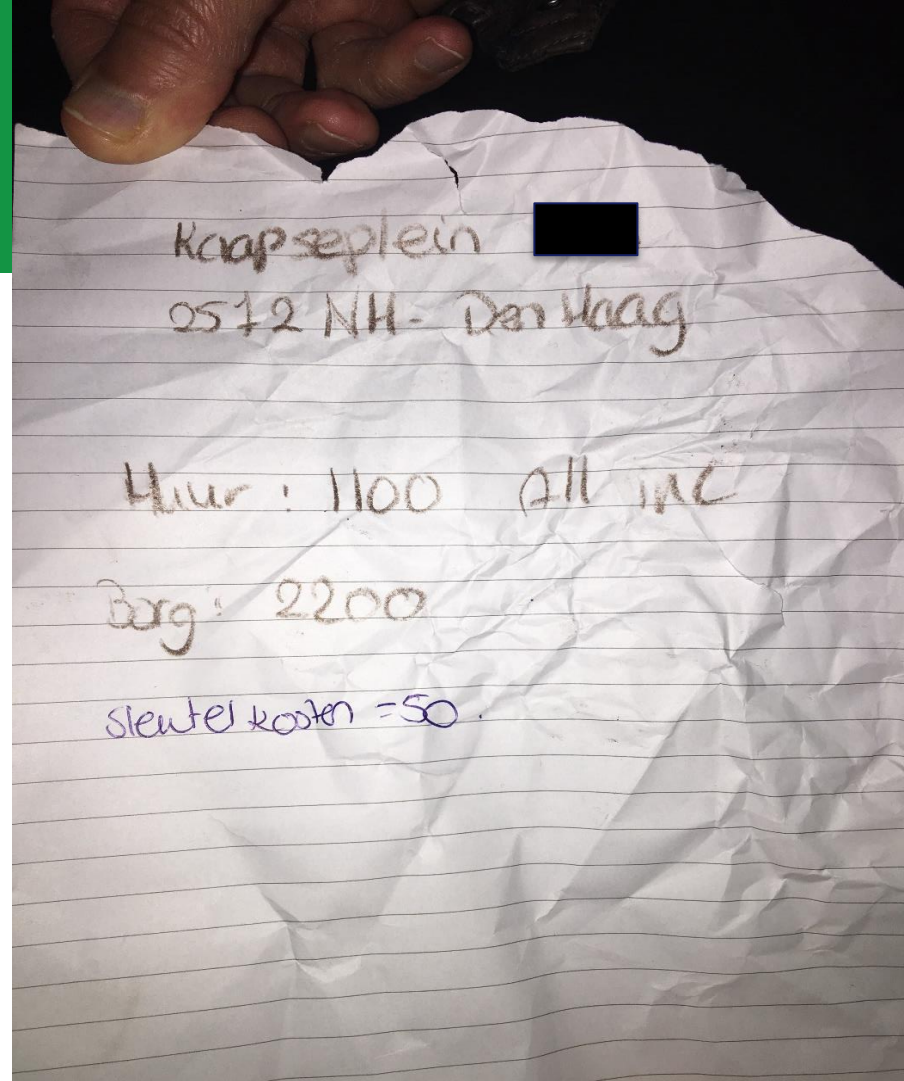 Kaapseplein
2572 NH - Den Haag
Huur : 1100 All inc
Borg : 2200
Sleutelkosten = 50.